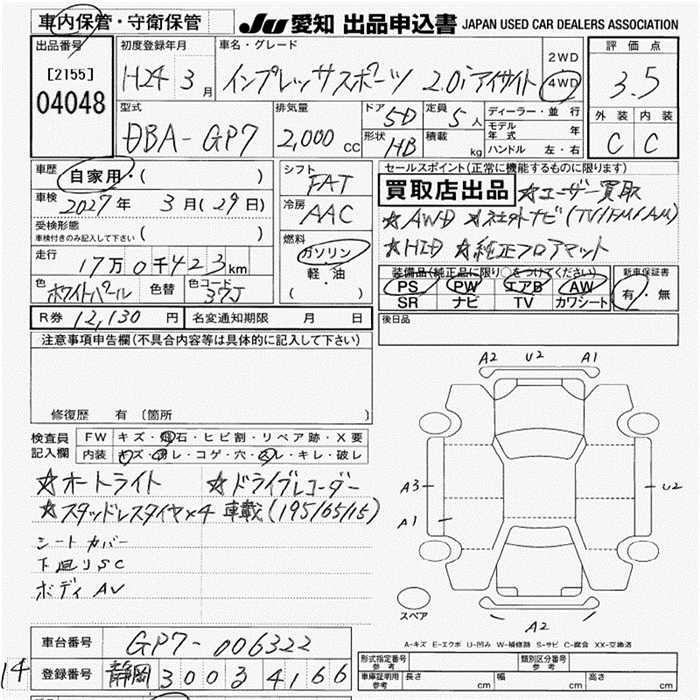 車内保管・守衛保管
JU 愛知 出品申込書 JAPAN USED CAR DEALERS ASSOCIATION
出品番号
[2155]
04048
初度登録年月
H24 3月
車名・グレード
インプレッサスポーツ 2.0iアイサイト
2WD
4WD
評価点
3.5
型式
DBA-GP7
排気量
2,000 CC
ドア
5D
定員
5人
形状
HB
積載
kg
ディーラー・並行
モデル年式 年
ハンドル 左・右
外装 内装
C C
車歴
自家用・( )
車検
2027年 3月(29日)
受検形態
車検付きのみ記入して下さい ( )
走行
17万0千423km
色
ホワイトパール
色替
色コード
37J
シフト
FAT
冷房
AAC
燃料
ガソリン
軽・油
( )
セールスポイント(正常に機能するものに限ります)
買取店出品 ☆ユーザー買取
☆AWD ☆社外ナビ(TV/FM/AM)
☆HID ☆純正フロアマット
装備品(純正品に限り○をつけてください)
PS PW エアB AW
SR ナビ TV カワシート
新車保証書
有・無
R券 12,130円
名変通知期限 月 日
後日品
注意事項申告欄(不具合内容等は具体的に記入して下さい)
修復歴 有 〔箇所 〕
検査員記入欄
FW キズ・飛石・ヒビ割・リペア跡・X要
内装 キズ・汚レ・コゲ・穴・スレ・キレ・破レ
☆オートライト ☆ドライブレコーダー
☆スタッドレスタイヤ×4 車載(195/65/15)
シートカバー
下廻りSC
ボディAV
A2 U2 A1
A3
A1
U2
A2
スペア
A-キズ E-エクボ U-凹み W-補修跡 S-サビ C-腐食 XX-交換済
車台番号 GP7-006322
14
登録番号 静岡 300 る 4166
形式指定番号 参考
類別区分番号 参考
車庫証明用 参考
長さ cm
幅 cm
高さ cm